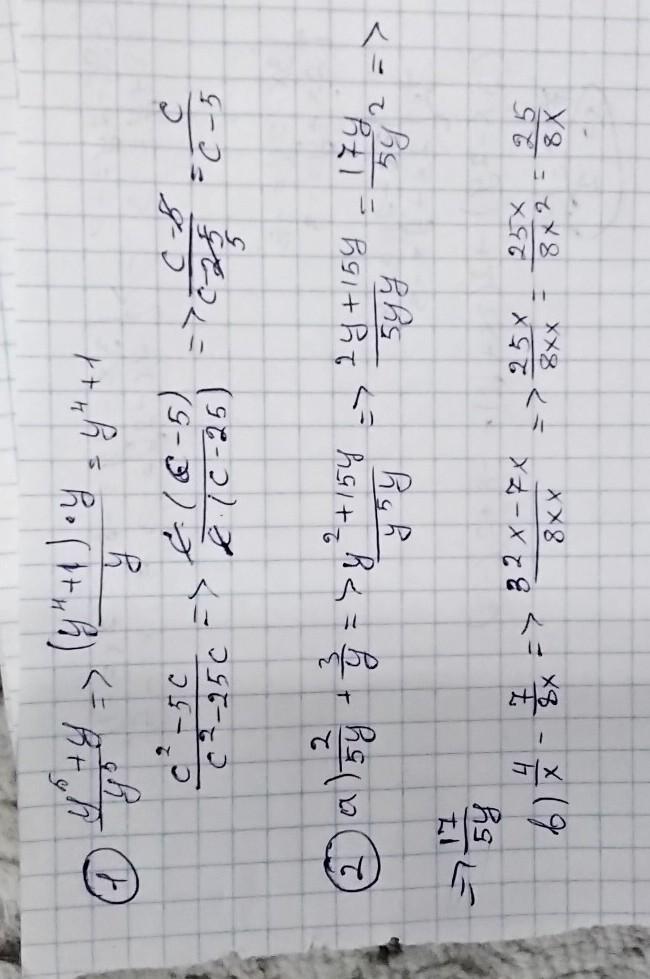 1 (y⁵+y)/y⁵ => ((y⁴+1)·y)/y = y⁴+1
(c²-5c)/(c²-25c) => (c·(c-5))/(c·(c-25)) => (c-5)/(c-25) 5 = c/(c-5)
2 a) 2/(5y) + 3/y => (y2+15y)/(y5y) => (2y+15y)/(5yy) = 17y/(5y²) =>
=> 17/(5y)
b) 4/x - 7/(8x) => (32x-7x)/(8xx) => 25x/(8xx) = 25x/(8x²) = 25/(8x)